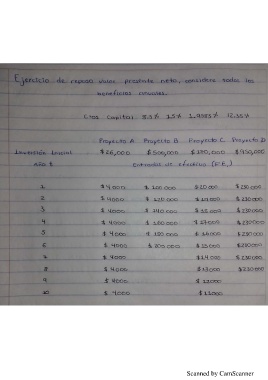 Ejercicio de repaso valor presente neto, considere todos los
beneficios anuales.
Costo Capital 8.5% 15% 12.35%
Proyecto A Proyecto B Proyecto C Proyecto D
Inversión Inicial $26,000 $500,000 $170,000 $950,000
Año t Entradas de efectivo (FE)
1 $4000 $100 000 $20 000 $230 000
2 $4000 $120 000 $19 000 $230 000
3 $4000 $140 000 $230 000
4 $4000 $160 000 $17 000 $230 000
5 $4000 $180 000 $16 000 $230 000
6 $4000 $200 000 $15 000 $230 000
7 $4000 $14 000 $230 000
8 $4000 $13 000 $230 000
9 $4000 $12000
10 $4000 $11000
Scanned by CamScanner